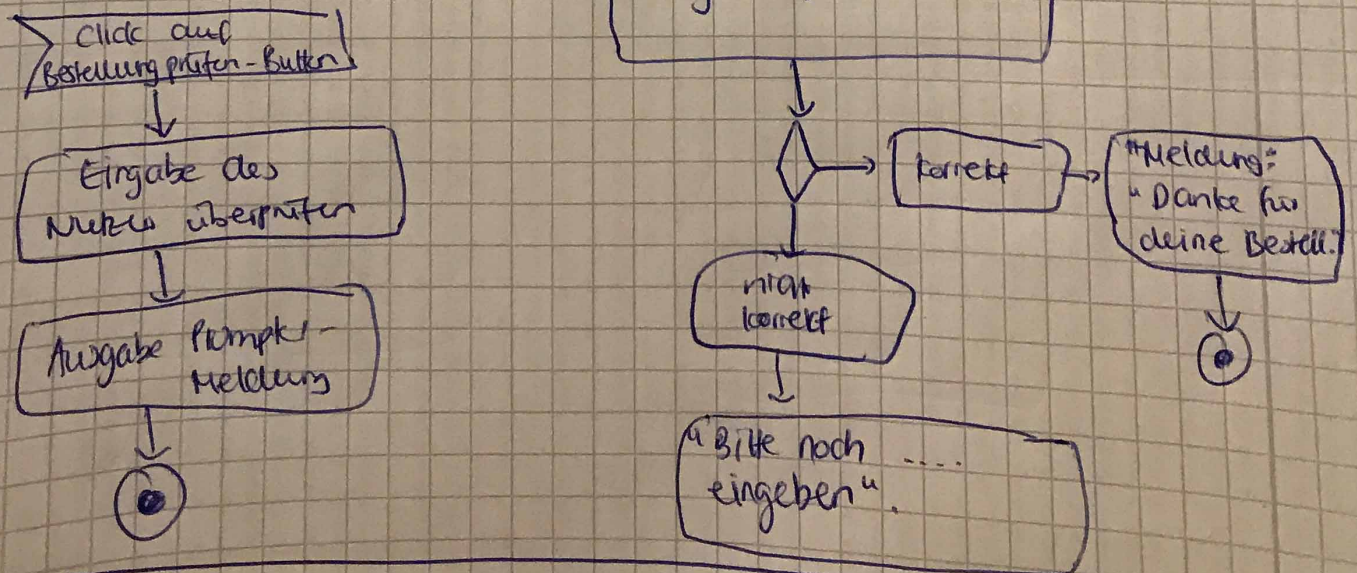 Click auf
Bestellung prüfen-Button
Eingabe des
Nutzers überprüfen
Ausgabe Prompt-
Meldung
korrekt
"Meldung:
"Danke für
deine Bestell."
nicht
korrekt
"Bitte noch ....
eingeben".